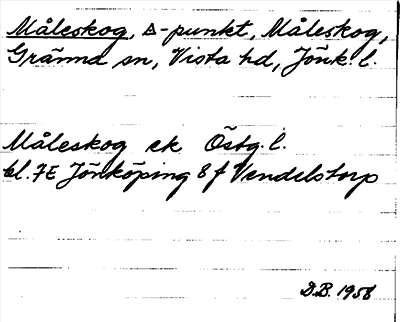 Måleskog, △-punkt, Måleskog,
Gränna sn, Vista hd, Jönk. l.
Måleskog ek. Östg. l.
bl. 7E Jönköping 8 f Vendelstorp
D.B. 1958